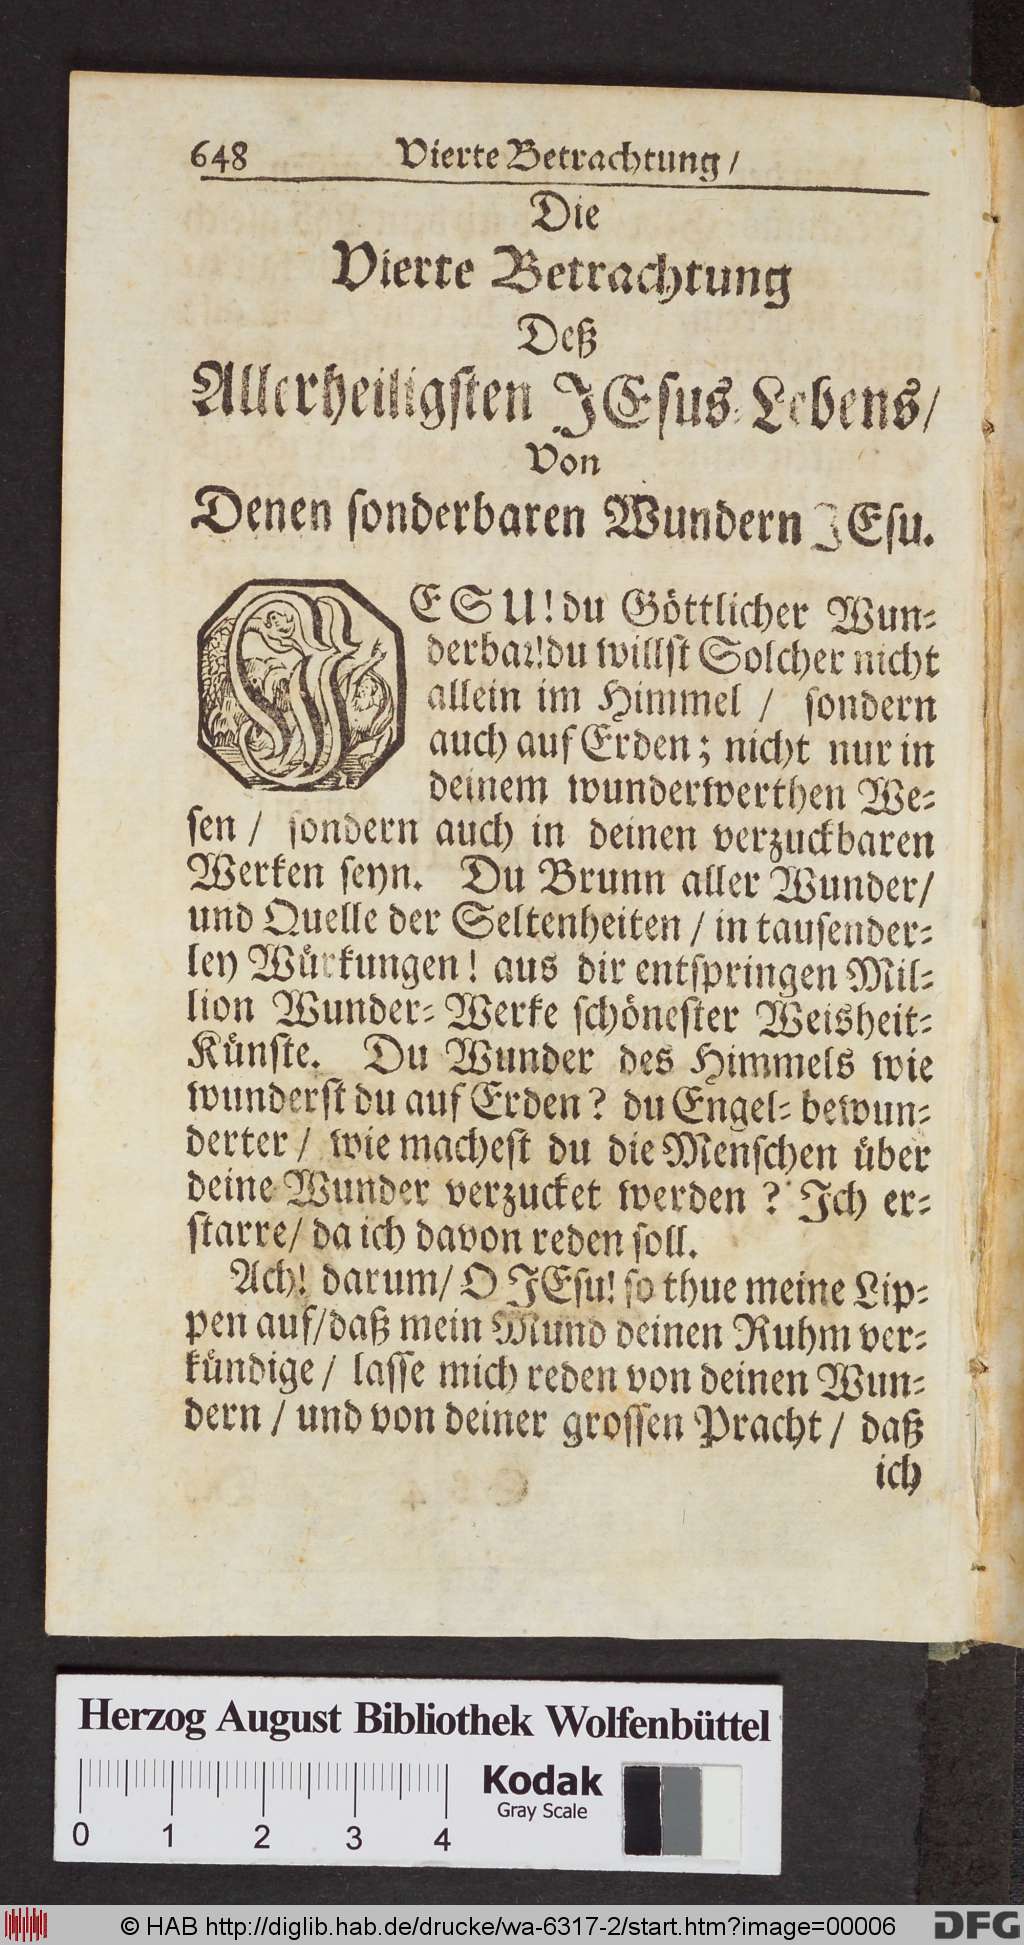 648 Vierte Betrachtung /
Die
Vierte Betrachtung
Deß
Allerheiligsten JEsus-Lebens /
Von
Denen sonderbaren Wundern JEsu.
JESU! du Göttlicher Wun-
derbar! du willst Solcher nicht
allein im Himmel / sondern
auch auf Erden; nicht nur in
deinem wunderwerthen We-
sen / sondern auch in deinen verzuckbaren
Werken seyn. Du Brunn aller Wunder /
und Quelle der Seltenheiten / in tausender-
ley Würkungen! aus dir entspringen Mil-
lion Wunder-Werke schönester Weisheit-
Künste. Du Wunder des Himmels wie
wunderst du auf Erden? du Engel-bewun-
derter / wie machest du die Menschen über
deine Wunder verzucket werden? Ich er-
starre / da ich davon reden soll.
Ach! darum / O JEsu! so thue meine Lip-
pen auf / daß mein Mund deinen Ruhm ver-
kündige / lasse mich reden von deinen Wun-
dern / und von deiner grossen Pracht / daß
ich
Herzog August Bibliothek Wolfenbüttel
0 1 2 3 4
Kodak
Gray Scale
© HAB http://diglib.hab.de/drucke/wa-6317-2/start.htm?image=00006
DFG